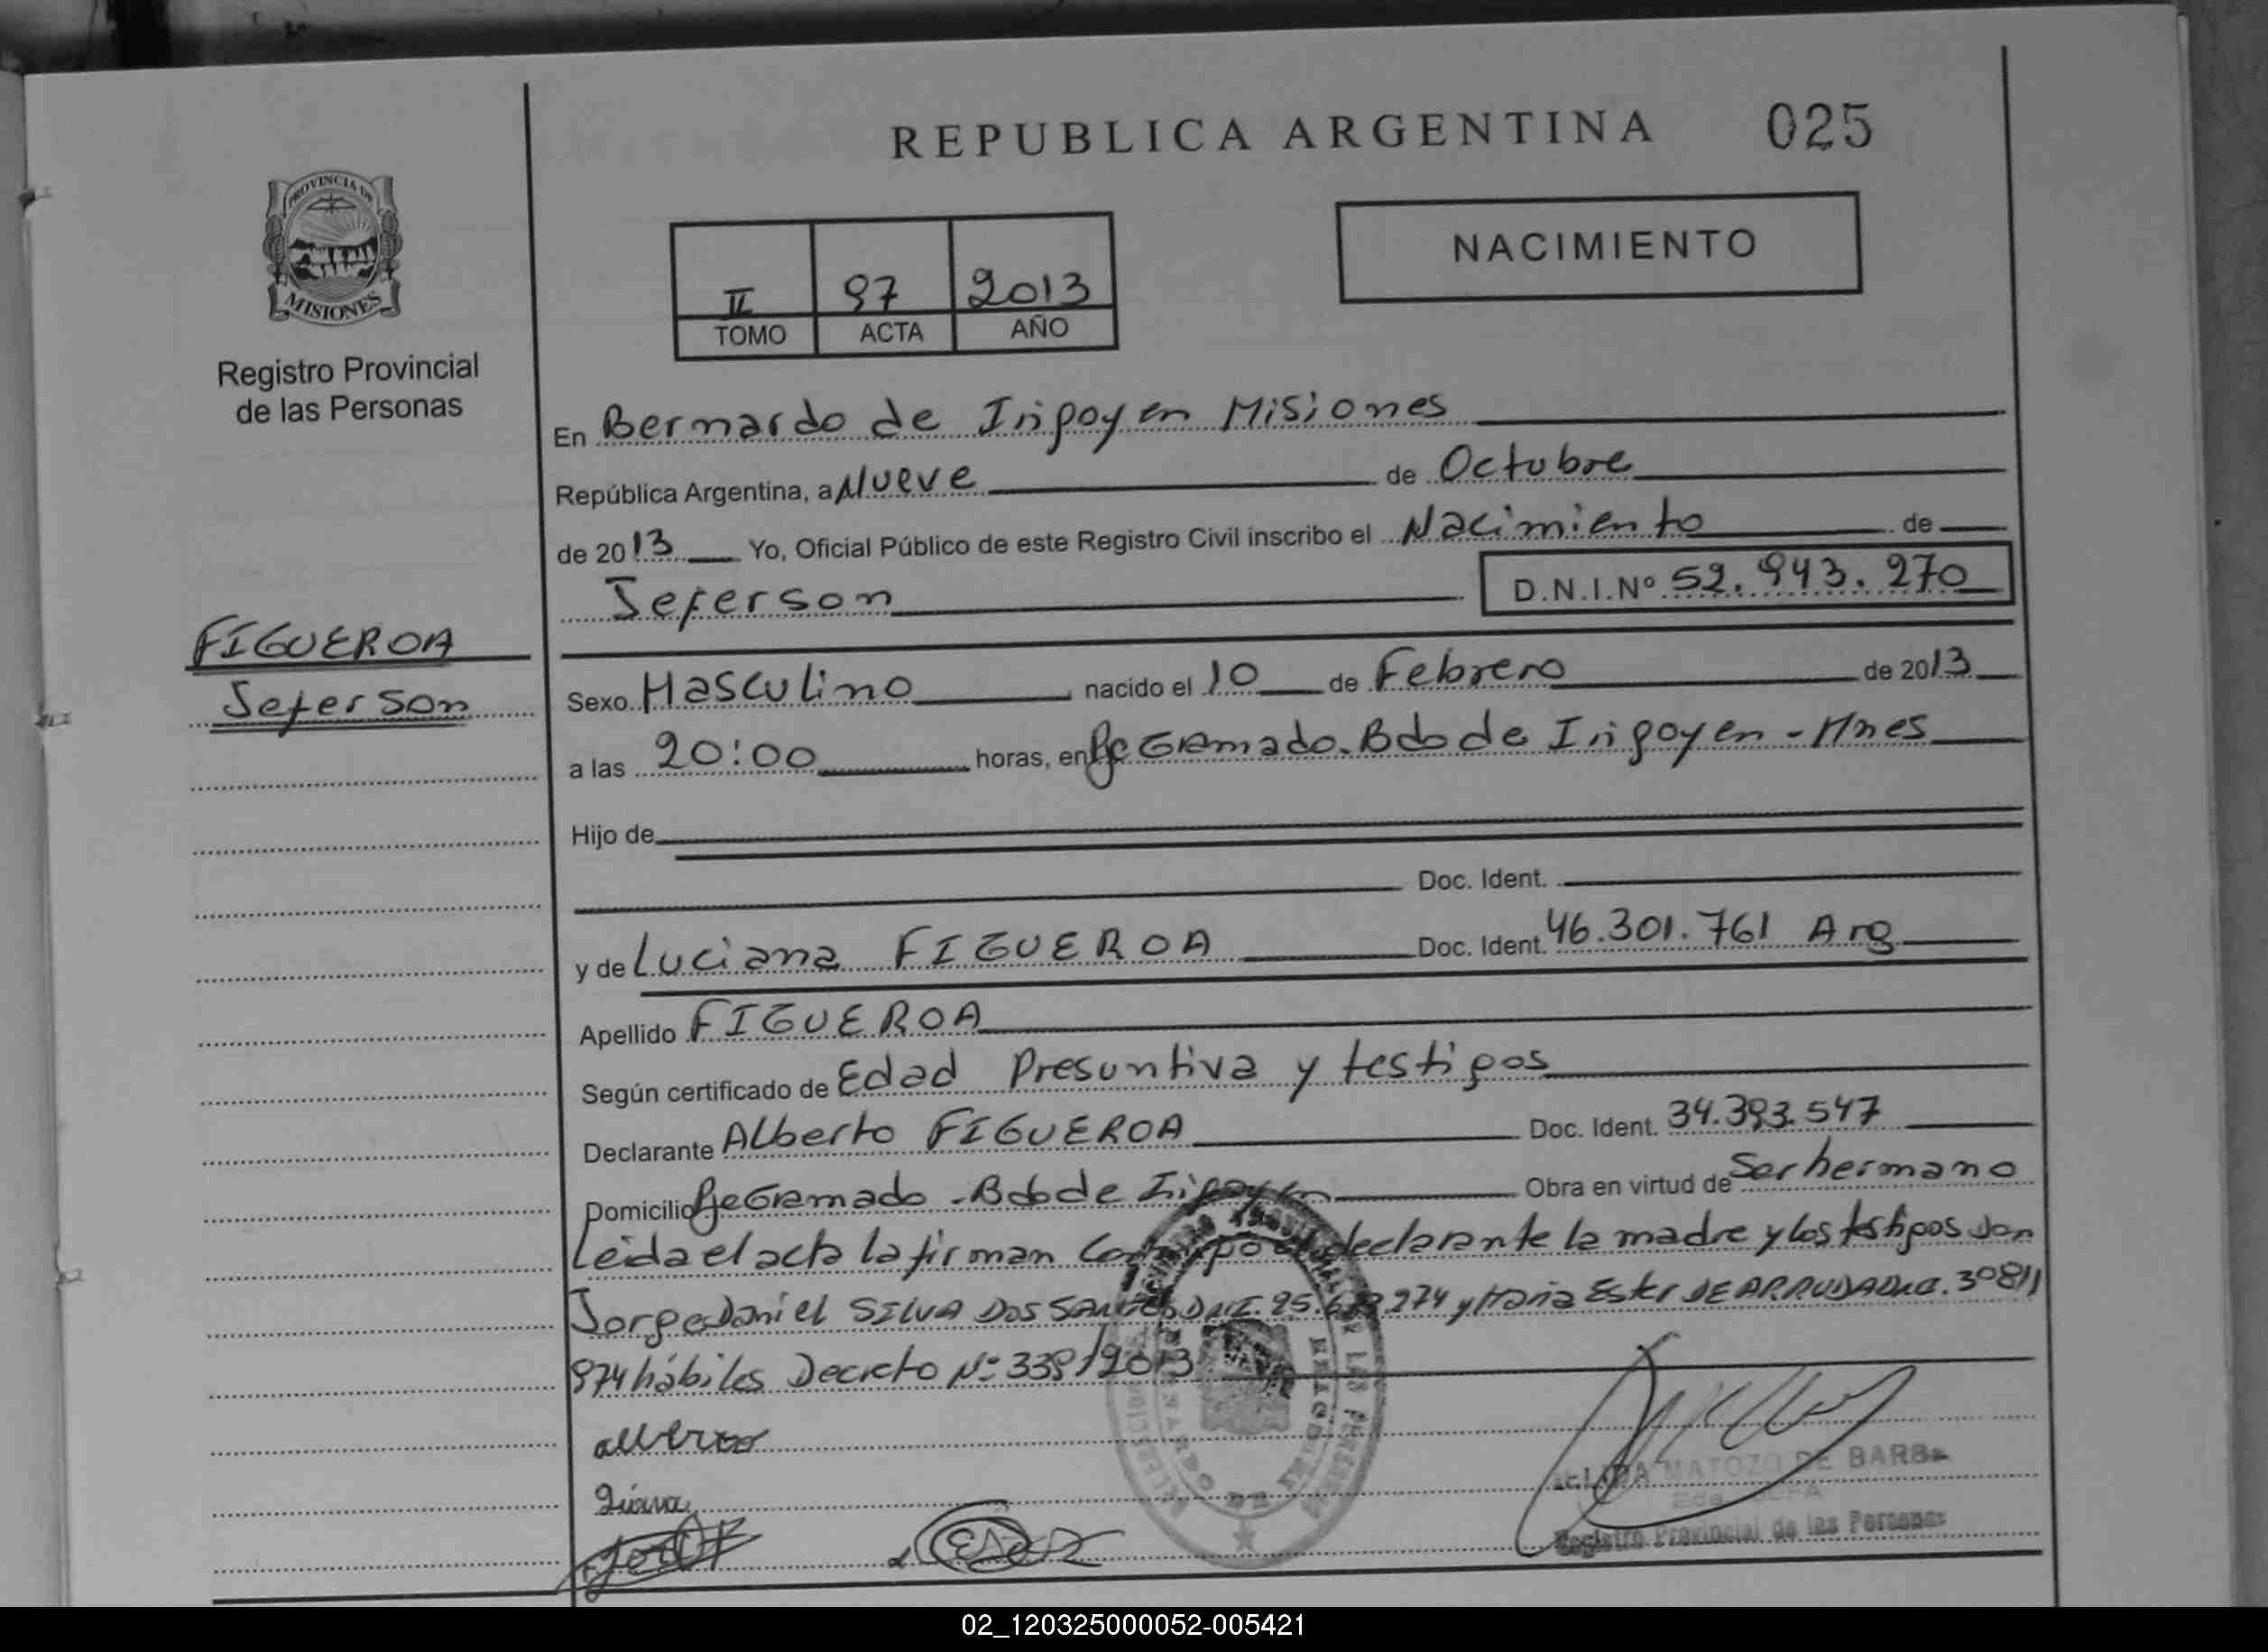 REPUBLICA ARGENTINA 025
PROVINCIA DE
MISIONES
Registro Provincial
de las Personas
NACIMIENTO
II 97 2013
TOMO ACTA AÑO
En Bernardo de Irigoyen Misiones
República Argentina, a Nueve de Octubre
de 2013 Yo, Oficial Público de este Registro Civil inscribo el Nacimiento de
Jeferson D.N.I.Nº 52.943.270
FIGUEROA
Jeferson
Sexo Masculino nacido el 10 de Febrero de 2013
a las 20:00 horas, en Pje Gramado. Bdo de Irigoyen - Mnes
Hijo de
Doc. Ident.
y de Luciana FIGUEROA Doc. Ident. 46.301.761 Arg
Apellido FIGUEROA
Según certificado de Edad Presuntiva y testigos
Declarante Alberto FIGUEROA Doc. Ident. 34.393.547
Domicilio Pje Gramado - Bdo de Irigoyen Obra en virtud de Ser hermano
Leida el acta la firman Conmigo el declarante la madre y los testigos son
Jorge Daniel SILVA DOS SANTOS D.N.I. 25. 274 y Maria Ester DE ARRUDA 30811
974 hábiles Decreto Nº 339/2013
alberto
MATOZO DE BARBA
Registro Provincial de las Personas
02_120325000052-005421